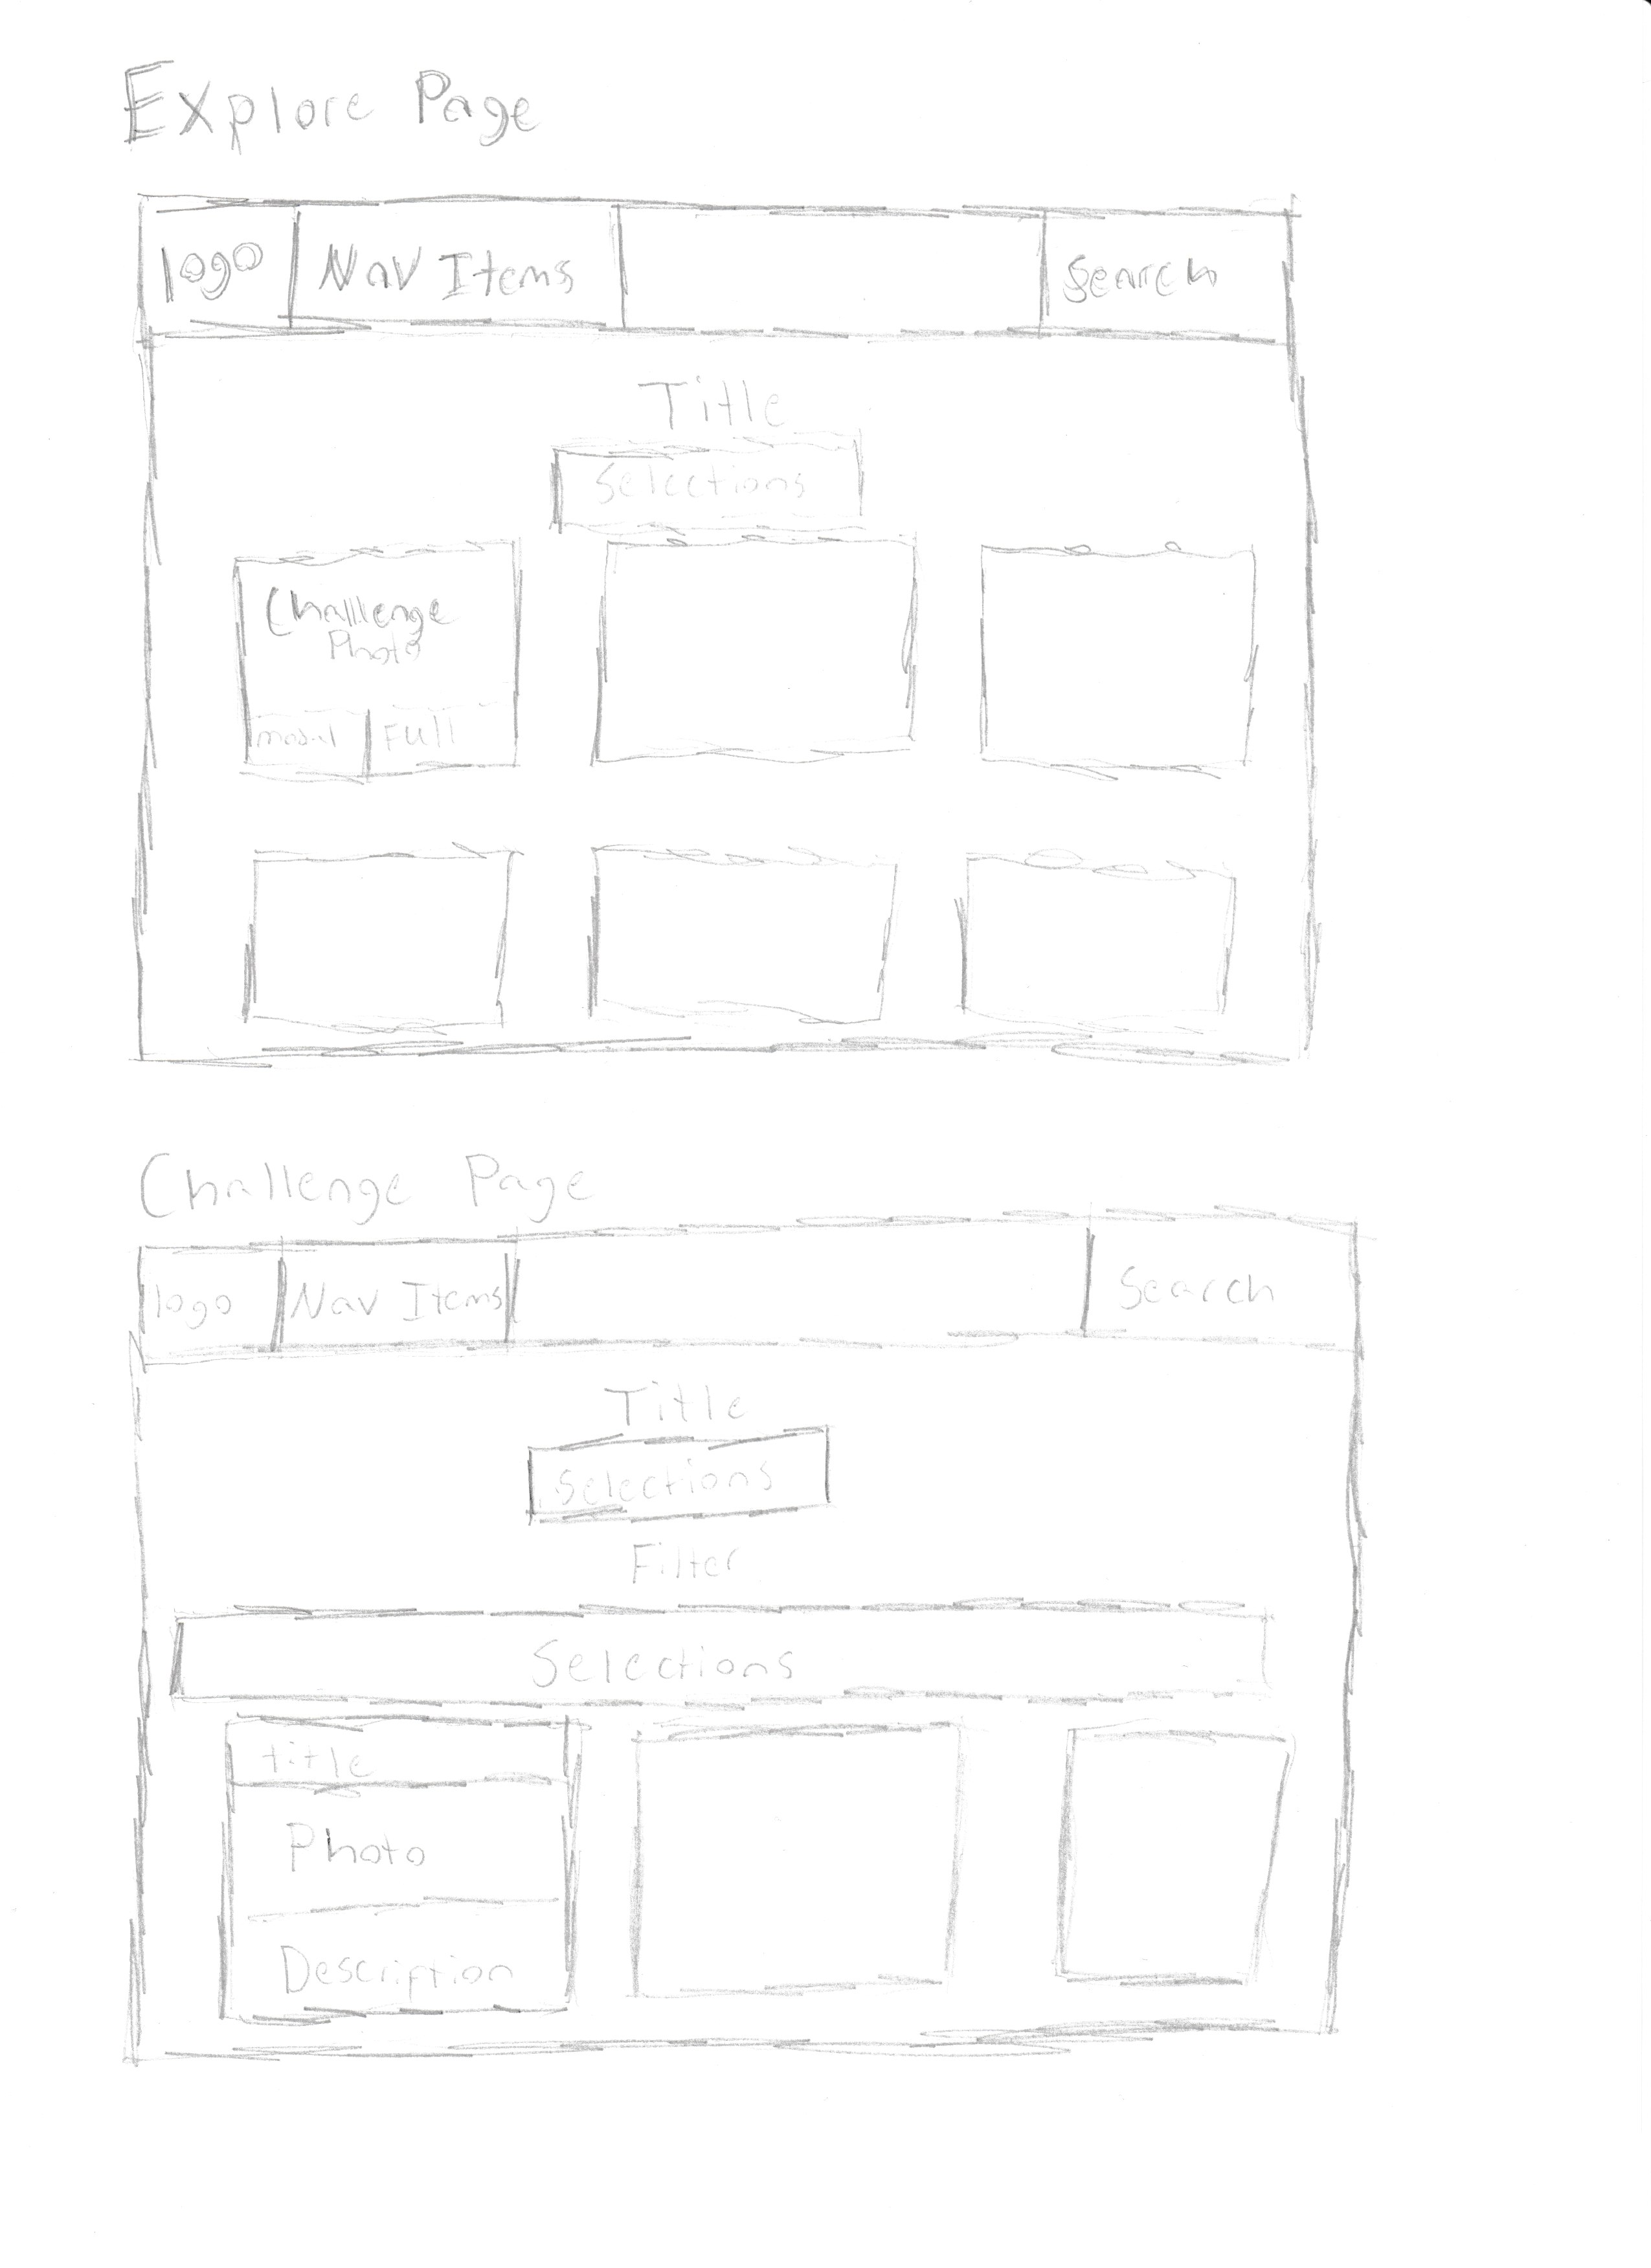 Explore Page
logo Nav Items Search
Title
Selections
Challenge
Photo
modal Full
Challenge Page
logo Nav Items Search
Title
Selections
Filter
Selections
title
Photo
Description